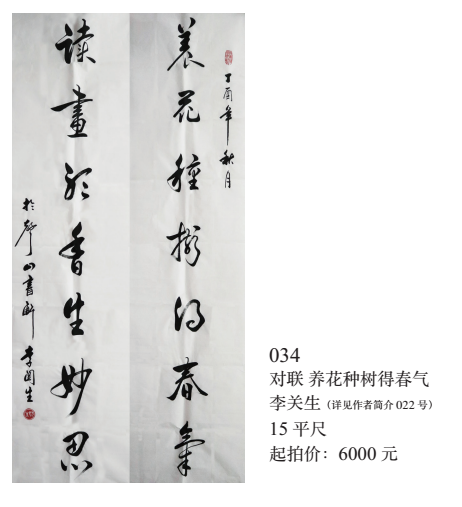 养花種樹得春氣
丁酉年秋月
读畫香生妙思
於山書斋 李関生
034
对联 养花种树得春气
李关生（详见作者简介 022 号）
15 平尺
起拍价：6000 元